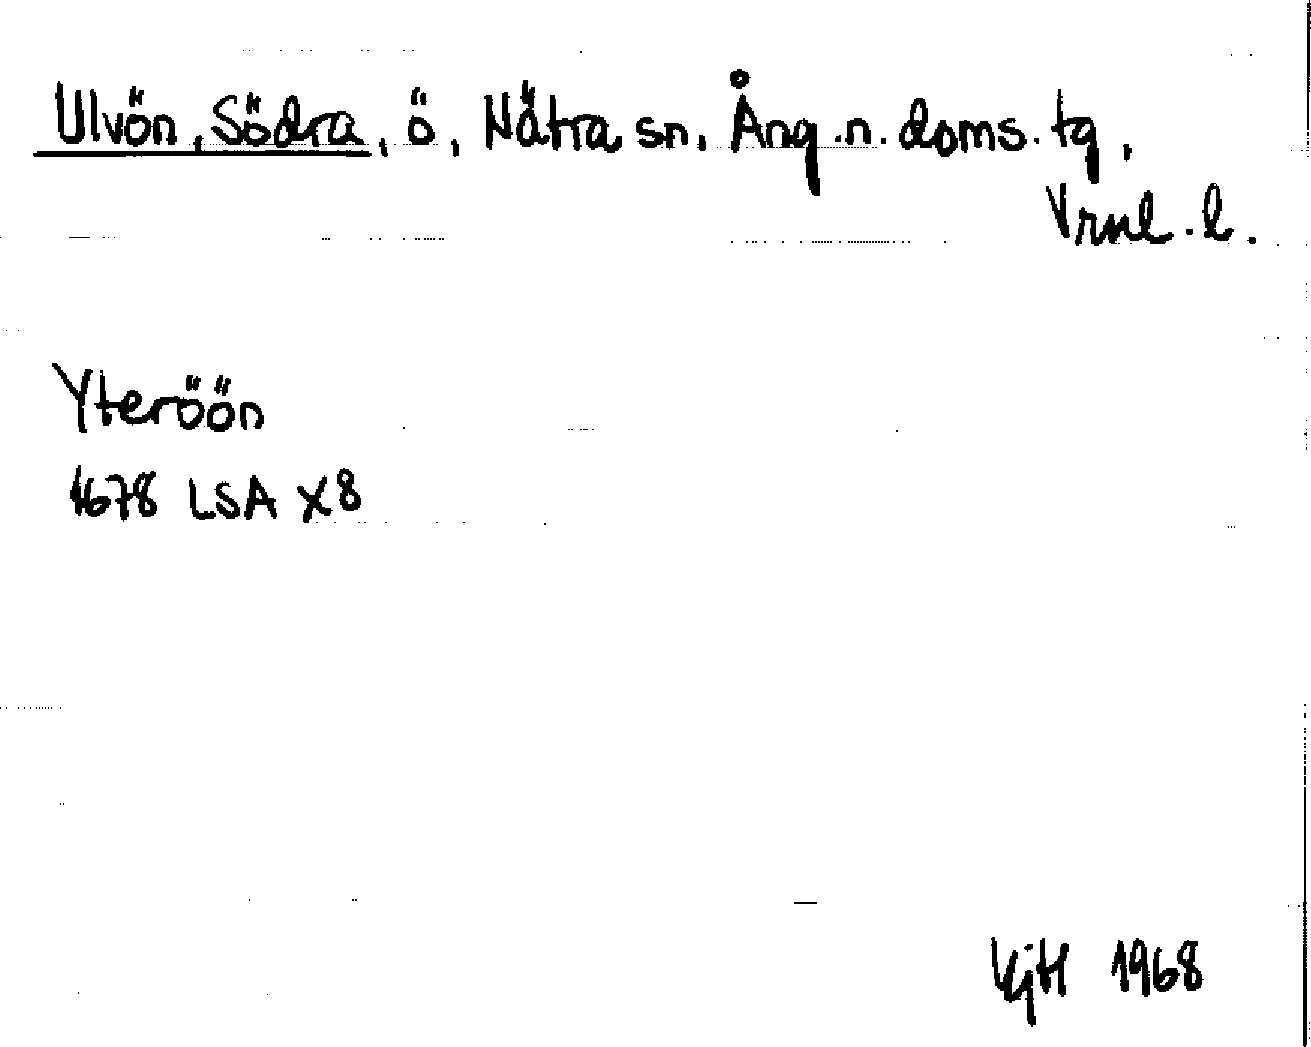 Ulvön, Södra, ö, Nätra sn, Ång.n.doms.tg,
Vrnl.l.
Yteröön
1678 LSA X8
1968